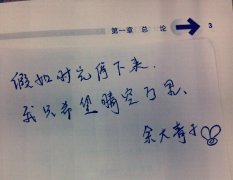 第一章 总 论 3
假如时光停下来.
我只希望晴空万里、
余大